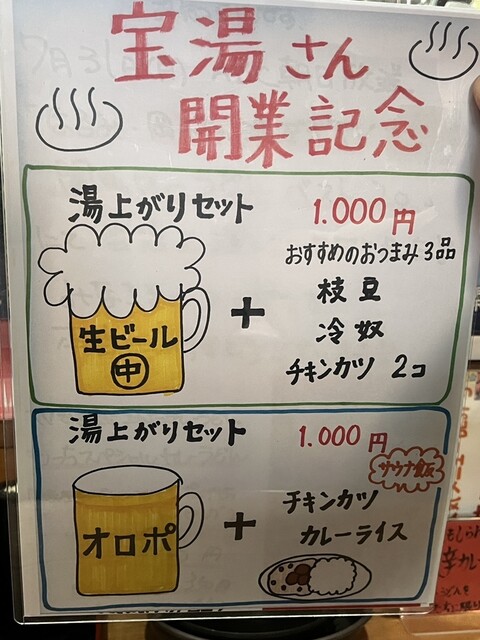 宝湯さん
開業記念
湯上がりセット
1.000円
おすすめのおつまみ3品
生ビール
中
+
枝豆
冷奴
チキンカツ 2コ
湯上がりセット
1.000円
サウナ飯
オロポ
+
チキンカツ
カレーライス